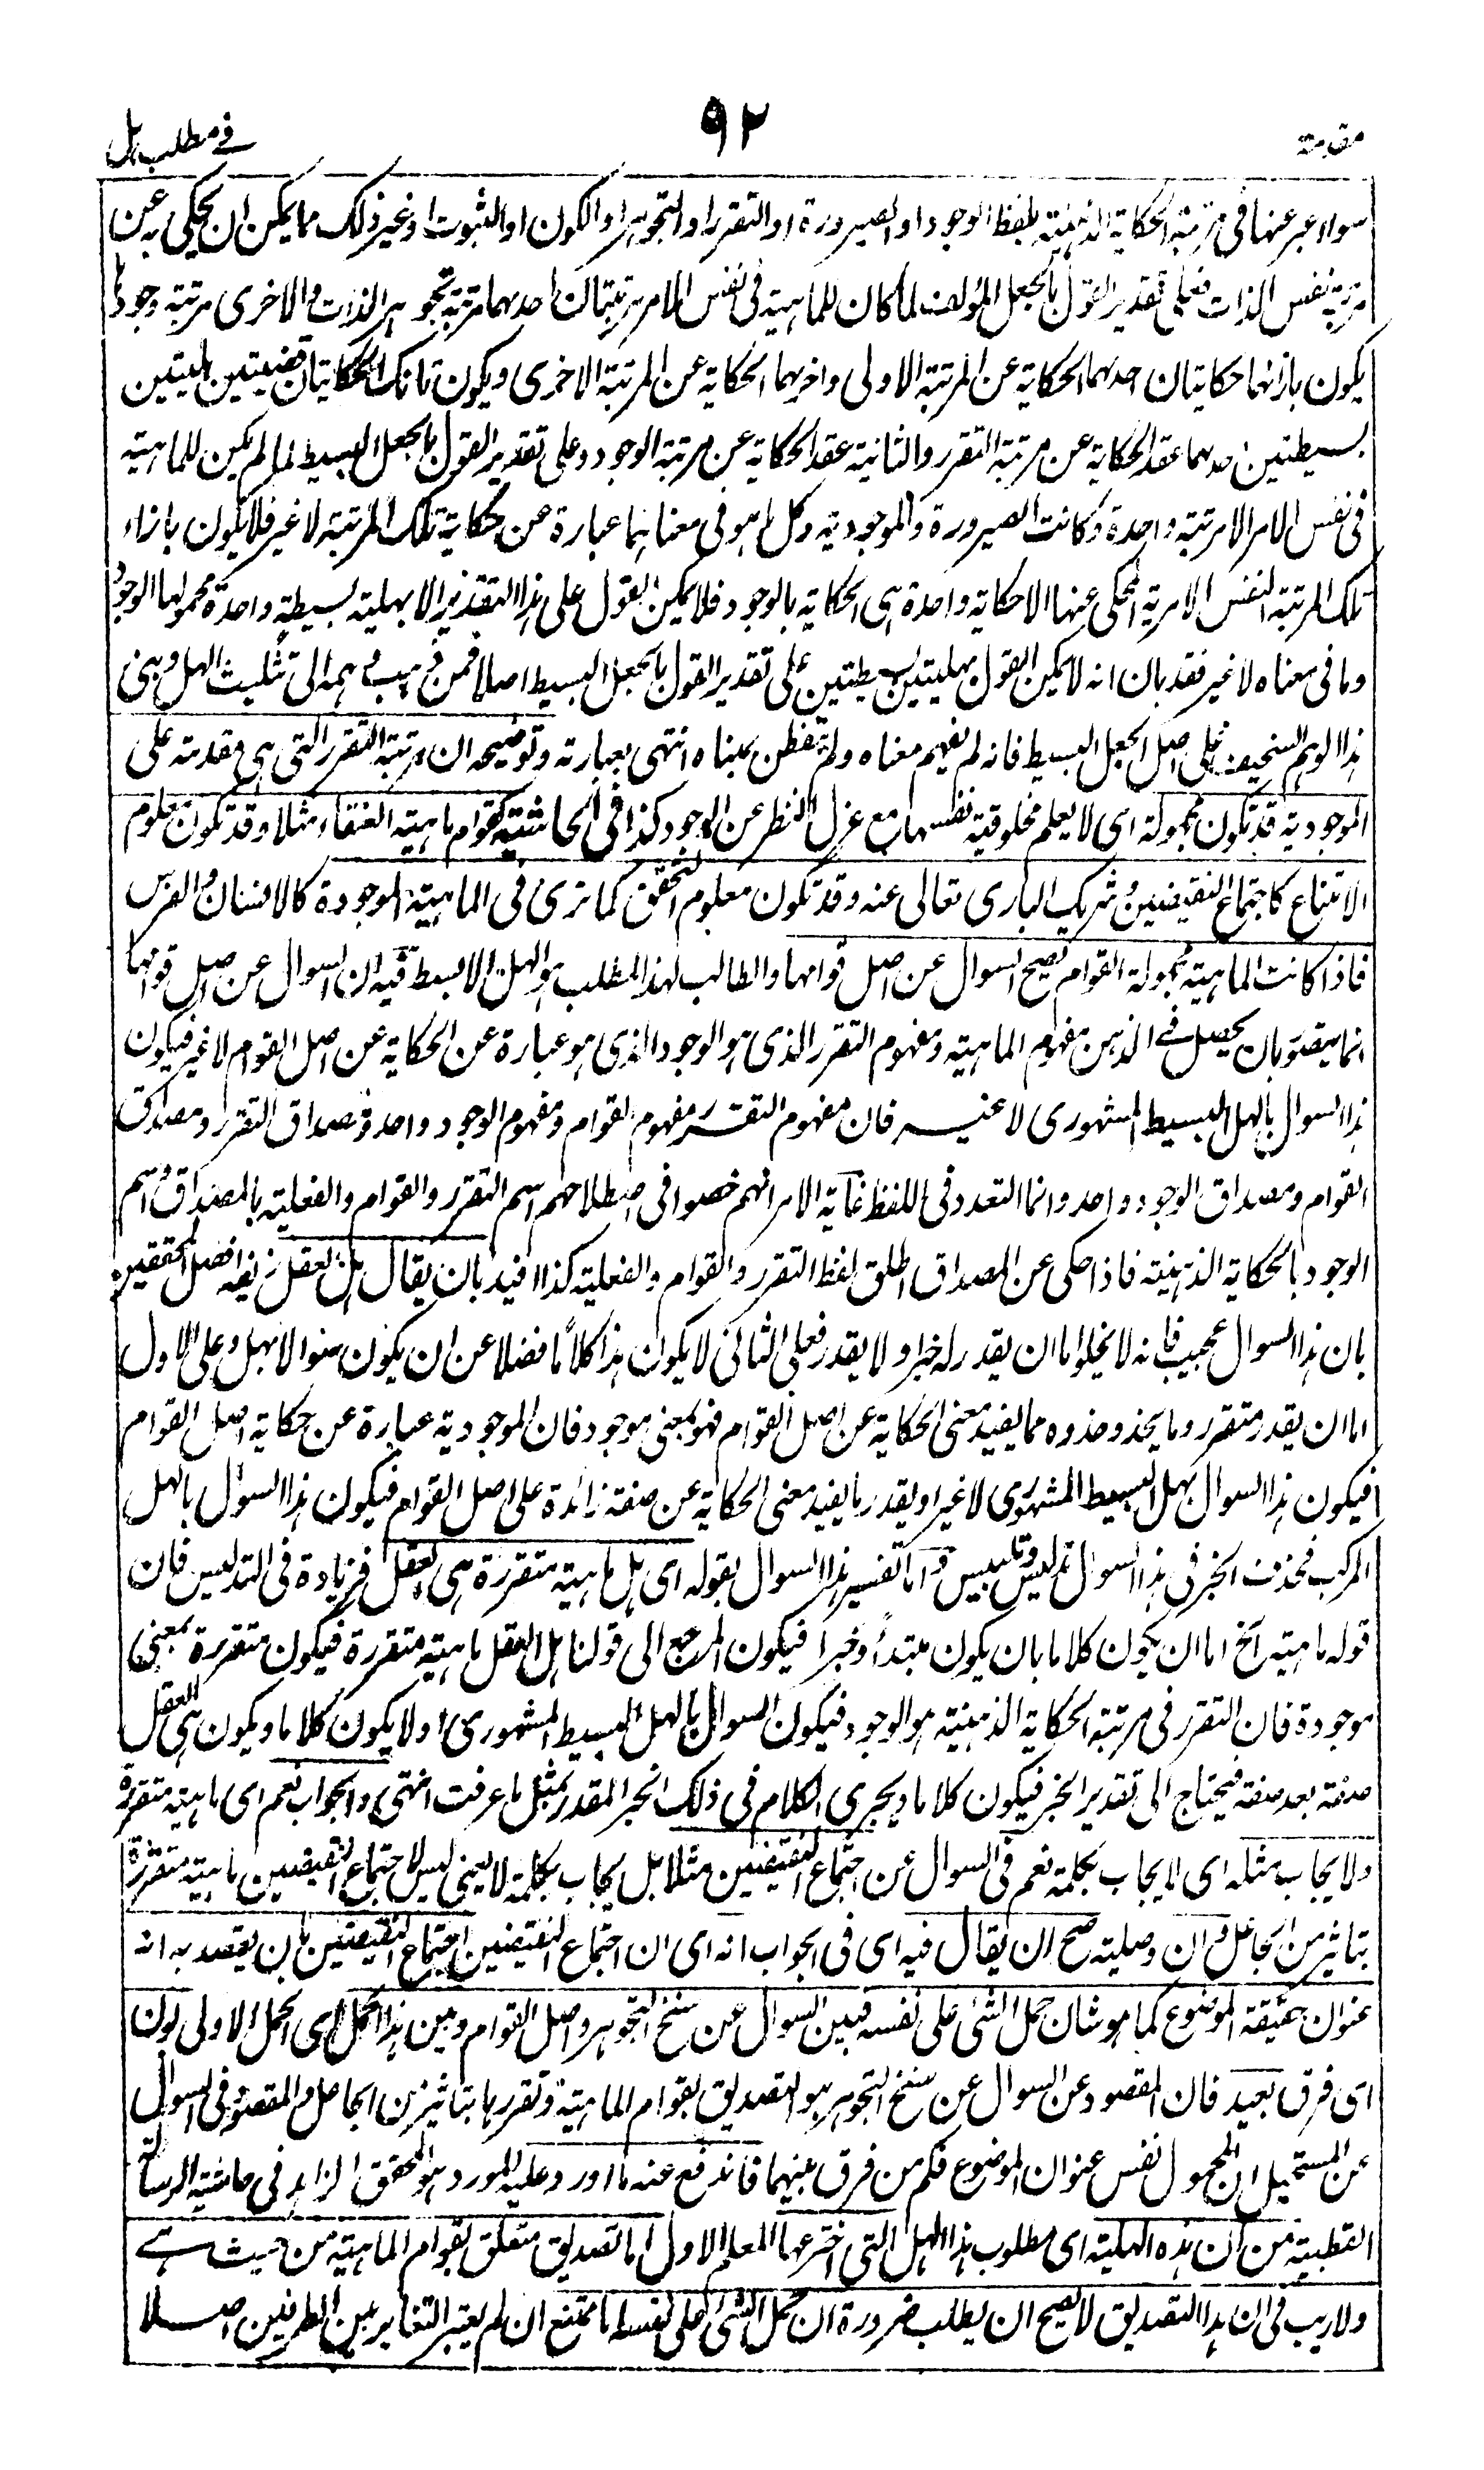 مقدمة
٩٢
فے مطلب ہل
سواء عبر عنها فى مرتبة الحكاية الذهنية بلفظ الوجود او الصيرورة او التقرر او التجوهر او الكون او الثبوت او غير ذلك مما يمكن ان يحكى به عن
مرتبة نفس الذات فعلى تقدير القول بالجعل المؤلف لما كان للماهية فى نفس الامر مرتبتان احدهما مرتبة تجوهر الذات والاخرى مرتبة وجودها
يكون بازائهما حكايتان احدهما الحكاية عن المرتبة الاولى واخرهما الحكاية عن المرتبة الاخرى ويكون تانك الحكايتان قضيتين هليتين
بسيطتين احدهما عقد الحكاية عن مرتبة التقرر والثانية عقد الحكاية عن مرتبة الوجود وعلى تقدير القول بالجعل البسيط لما لم يكن للماهية
فى نفس الامر الا مرتبة واحدة وكانت الصيرورة والموجودية وكل ما هو فى معناهما عبارة عن حكاية تلك المرتبة لا غير فلا يكون بازاء
تلك المرتبة النفس الامرية المحكى عنها الا حكاية واحدة هى الحكاية بالوجود فلا يمكن القول على هذا التقدير الا بهلية بسيطة واحدة محمولها الوجود
وما فى معناه لا غير فقد بان انه لا يمكن القول بهليتين بسيطتين على تقدير القول بالجعل البسيط اصلا فمن ذهب وهمه الى تثليث الهل وبنى
هذا الوهم السخيف على اصل الجعل البسيط فانه لم يفهم معناه ولم يتفطن بمبناه انتهى بعبارته وتوضيحه ان مرتبة التقرر التى هى مقدمة على
الموجودية قد تكون مجهولة اى لا يعلم مخلوقية نفسها مع عزل النظر عن الوجود كذا فى الحاشية كقوام ماهية العنقاء مثلا وقد تكون معلوم
الامتناع كاجتماع النقيضين وشريك البارى تعالى عنه وقد تكون معلوم التحقق كما ترى فى الماهية الموجودة كالانسان والفرس
فاذا كانت الماهية مجهولة القوام يصح السوال عن اصل قوامها والطالب لهذا المطلب هو الهل الابسط فيه ان السوال عن اصل قوامها
انما يتصور بان يحصل فے الذهن مفهوم الماهية ومفهوم التقرر الذى هو الوجود الذى هو عبارة عن الحكاية عن اصل القوام لا غير فيكون
هذا السوال بالهل البسيط المشهورى لا غير فان مفهوم التقرر ومفهوم القوام ومفهوم الوجود واحد ومصداق التقرر ومصداق
القوام ومصداق الوجود واحد وانما التعدد فى اللفظ غاية الامر انهم خصوا فى اصطلاحهم اسم التقرر والقوام والفعلية بالمصداق واسم
الوجود بالحكاية الذهنية فاذا حكى عن المصداق اطلق لفظ التقرر والقوام والفعلية كذا افيد بان يقال هل العقل زيفه افضل المحققين
بان هذا السوال عجيب فانه لا يخلوا ما ان يقدر له خبر او لا يقدر فعلى الثانى لا يكون هذا كلاما فضلا عن ان يكون سوالا بهل وعلى الاول
اما ان يقدر متقرر وما يحذو حذوه مما يفيد معنى الحكاية عن اصل القوام فهو بمعنى موجود فان الموجودية عبارة عن حكاية اصل القوام
فيكون هذا السوال بهل البسيط المشهورى لا غير او يقدر ما يفيد معنى الحكاية عن صفة زائدة على اصل القوام فيكون هذا السؤال بالهل
المركب فحذف الخبر فى هذا السوال تدليس وتلبيس واما تفسير هذا السوال بقوله اى هل ماهية متقررة هى العقل فزيادة فى التدليس فان
قوله ماهية آلخ اما ان يكون كلاما بان يكون مبتدأ وخبرا فيكون المرجع الى قولنا هل العقل ماهية متقررة فيكون متقررة بمعنى
موجودة فان التقرر فى مرتبة الحكاية الذهنية هو الوجود فيكون السوال بالهل البسيط المشهورى او لا يكون كلاما ويكون هى العقل
صفة بعد صفة فيحتاج الى تقدير الخبر فيكون كلاما ويجرى الكلام فى ذلك الخبر المقدر بمثل ما عرفت انتهى والجواب نعم اى ماهية متقررة
ولا يجاب مثله اى لا يجاب بكلمة نعم فى السوال عن اجتماع النقيضين مثلا بل يجاب بكلمة لا يعنى ليس لاجتماع النقيضين ماهية متقررة
بتاثير من الجاعل وان وصلية صح ان يقال فيه اى فى الجواب انه اى ان اجتماع النقيضين اجتماع النقيضين بان يقصد به انه
عنوان حقيقة الموضوع كما هو شان حمل الشئ على نفسه فبين السوال عن سنخ التجوهر واصل القوام وبين هذا الحمل اى الحمل الاولى بون
اى فرق بعيد فان المقصود عن السوال عن سنخ التجوهر هو التصديق بقوام الماهية وتقررها بتاثير من الجاعل والمقصود فى السوال
عن المستحيل ان المحمول نفس عنوان الموضوع فكم من فرق بينهما فاندفع عنه ما اورد عليه المورد هو المحقق الزاهد فى حاشية الرسالة
القطبية من ان هذه الهلية اى مطلوب هذا الهل التى اخترعها المعلم الاول اما تصديق متعلق بقوام الماهية من حيث هے
ولا ريب فى ان هذا التصديق لا يصح ان يطلب ضرورة ان حمل الشئ على نفسه اما ممتنع ان لم يعتبر التغاير بين الطرفين اصلا